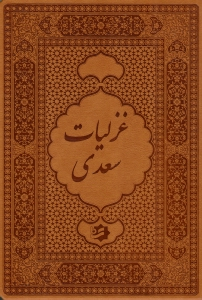 غزلیات
سعدی